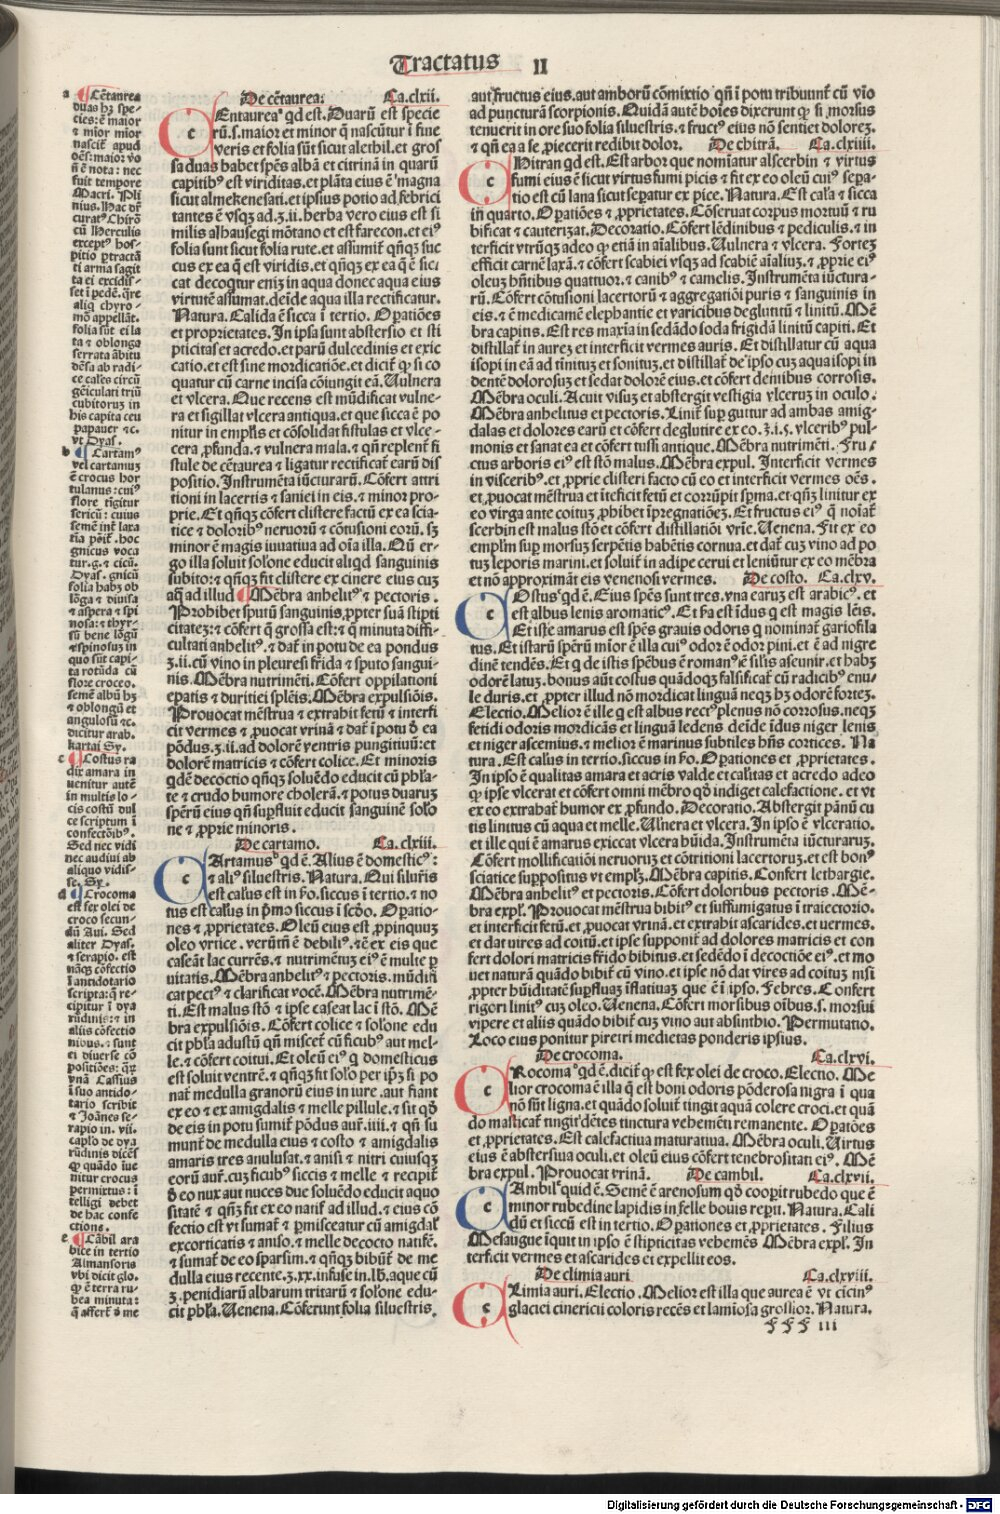 Tractatus II
De cẽtaurea. Ca.clxii.
CEntaurea qd est. Duarũ est specie
rũ.s.maior et minor q̃ nascũtur ĩ fine
veris et folia sũt sicut alerhil.et gros
sa duas habet spẽs albã et citrinã in quarũ
capitibꝰ est viriditas.et plãta eius ẽ magna
sicut almekenesari.et ipsius potio ad febrici
tantes ẽ vsqꝫ ad.ʒ.ii. herba vero eius est si
milis alhausegi mõtano et est farecon.et eiꝰ
folia sunt sicut folia rute.et assumit̃ qñqꝫ suc
cus ex ea q̃ est viridis.et qñqꝫ ex ea q̃ ẽ sic
cat decoqtur enim in aqua donec aqua eius
virtutẽ assumat.deĩde aqua illa rectificatur.
Natura. Calida ẽ sicca ĩ tertio. Oꝑatiões
et proprietates. In ipsa sunt abstersio et sti
pticitas et acredo.et parũ dulcedinis et exic
catio.et est sine mordicatiõe.et dicit̃ ꝙ si co
quatur cũ carne incisa cõiungit eã. Uulnera
et vlcera. Que recens est mũdificat vulne-
ra et sigillat vlcera antiqua.et que sicca ẽ po
nitur in emplis et cõsolidat fistulas et vlce-
cera ꝓfunda.⁊ vulnera mala.⁊ qñ replent̃ fi
stule de cẽtaurea ⁊ ligatur rectificat̃ earũ dis
positio. Instrumẽta iũcturarũ. Cõfert attri
tioni in lacertis ⁊ saniei in eis.⁊ minor pro-
prie. Et qñqꝫ cõfert clistere factũ ex ea scia-
tice ⁊ doloribꝰ neruorũ ⁊ cõtusioni eorũ. sꝫ
minor ẽ magis iuuatiua ad oĩa illa. Qũ er-
go illa soluit solõne educit aliqd sanguinis
subito:⁊ qñqꝫ fit clistere ex cinere eius cuꝫ
aq̃ ad illud. Mẽbra anhelitꝰ ⁊ pectoris.
Prohibet sputũ sanguinis ꝓpter suã stipti
citateꝫ:⁊ cõfert q̃ grossa est:⁊ q̃ minuta diffi-
cultati anhelitꝰ. ⁊ dat̃ in potu de ea pondus
ʒ.ii.cũ vino in pleuresi frĩda ⁊ sputo sangui-
nis. Mẽbra nutrimẽti. Cõfert oppilationi
epatis ⁊ duritiei splẽis. Mẽbra expulsiõis.
Prouocat mẽstrua ⁊ extrahit fetũ ⁊ interfi
cit vermes ⁊ ꝓuocat vrinã ⁊ dat̃ ĩ potu ð ea
põdus.ʒ.ii.ad dolorẽ ventris pungitiuũ:et
dolorẽ matricis ⁊ cõfert colice. Et minoris
qdẽ decoctio qñqꝫ soluẽdo educit cũ phla-
te ⁊ crudo humore cholerã.⁊ potus duaruꝫ
spẽrũ eius qñ supfluit educit sanguinẽ solo
ne ⁊ ꝓprie minoris.
De cartamo. Ca.clxiii.
CArtamus qd ẽ. Alius ẽ domesticꝰ:
⁊ aliꝰ siluestris. Natura. Qui siluris
est calus est in ño.siccus ĩ tertio.⁊ no
tus est calus in pmo siccus ĩ scðo. Oꝑatio-
nes ⁊ ꝓprietates. Oleũ eius est ꝓpinquuꝫ
oleo vrtice. verũtñ ẽ debiliꝰ.⁊ẽ ex eis que
caseãt lac currẽs.⁊ nutrimẽtuꝫ eiꝰ ẽ multe ꝑ
uitatis. Mẽbra anhelitꝰ ⁊ pectoris. mũdifi
cat pectꝰ ⁊ clarificat vocẽ. Mẽbra nutrimẽ-
ti. Est malus stõ ⁊ ipse caseat lac ĩ stõ. Mẽ
bra expulsiõis. Cõfert colice ⁊ solõne edu
cit phla adustũ qñ miscet̃ cũ ficubꝰ aut mel-
le.⁊ cõfert coitui. Et oleũ eiꝰ q̃ domesticus
est soluit ventrẽ.⁊ qñqꝫ fit solo per ipꝫ si po
nat̃ medulla granorũ eius in iure.aut fiant
ex eo ⁊ ex amigdalis ⁊ melle pillule.⁊ sit qð
de eis in potu sumit̃ põdus aur̃.iiii.⁊ qñ su
munt̃ de medulla eius ⁊ costo ⁊ amigdalis
amaris tres anulusat.⁊ anisi ⁊ nitri cuiusqꝫ
eorũ aur̃.cuꝫ ficubꝰ siccis ⁊ melle ⁊ recipit̃
ð eo nux aut nuces due soluẽdo educit aquo
sitatẽ ⁊ qñqꝫ fit ex eo natif ad illud.⁊ eius cõ
fectio est vt sumat̃ ⁊ ꝑmisceatur cũ amigdal̃
excorticatis ⁊ aniso.⁊ melle decocto natifẽ.
⁊ sumat̃ de eo sparsim.⁊ qñqꝫ bibũt̃ de me
dulla eius recente.ʒ.xx.infuse in.lb.aque cũ
ʒ.penidiarũ albarum tritarũ ⁊ solõne edu-
cit phla. Uenena. Cõferunt folia siluestris.
aut fructus eius.aut amborũ cõmixtio qñ ĩ potu tribuunt̃ cũ vio
ad puncturã scorpionis. Quidã autẽ hoĩes dixerunt ꝙ si morsus
tenuerit in ore suo folia siluestris.⁊ fructꝰ eius nõ sentiet doloreꝫ.
⁊ qñ ea a se ꝓiecerit redibit dolor. De chitrã. Ca.clxiiii.
CHitran qd est. Est arbor que nomĩatur alscerbin ⁊ virtus
fumi eius ẽ sicut virtus fumi picis ⁊ fit ex eo oleũ cuiꝰ sepa-
tio est cũ lana sicut sepatur ex pice. Natura. Est cala ⁊ sicca
iñ quarto. Oꝑatiões ⁊ ꝓprietates. Cõseruat corpus mortuũ ⁊ ru
bificat ⁊ cauterizat. Decoratio. Cõfert lẽdinibus ⁊ pediculis.⁊ in
terficit vtrũqꝫ adeo ꝙ etiã in aĩalibus. Uulnera ⁊ vlcera. Forteꝫ
efficit carnẽ laxã.⁊ cõfert scabiei vsqꝫ ad scabiẽ aĩaliuꝫ.⁊ ꝓprie eiꝰ
oleuꝫ hñtibus quattuor.⁊ canibꝰ ⁊ camelis. Instrumẽta iũctura-
rũ. Cõfert cõtusioni lacertorũ ⁊ aggregatiõi puris ⁊ sanguinis in
eis.⁊ ẽ medicamẽ elephantie et varicibus deglutitũ ⁊ linitũ. Mẽ
bra capitis. Est res maxĩa in sedãdo soda frigidã linitũ capiti. Et
distillat̃ in aureꝫ et interficit vermes auris. Et distillatur cũ aqua
isopi in eã ad tĩnituꝫ et sonituꝫ.et distillat̃ de ipso cuꝫ aqua isopi in
dentẽ dolorosuꝫ et sedat dolorẽ eius.et cõfert dentibus corrosis.
Mẽbra oculi. Acuit visuꝫ et abstergit vestigia vlceruꝫ in oculo.
Mẽbra anhelitus et pectoris. Linit̃ supꝛ guttur ad ambas amig-
dalas et dolores earũ et cõfert deglutire ex eo.ʒ.i.ᵴ.vlceribꝰ pul-
monis et sanat ea et cõfert tussi antique. Mẽbra nutrimẽti. Fru-
ctus arboris eiꝰ est stõ malus. Mẽbra expul. Interficit vermes
in visceribꝰ.et ꝓprie clisteri facto cũ eo et interficit vermes oẽs.
et ꝓuocat mẽstrua et ĩteficit fetũ et corrũpit spma.et qñqꝫ linitur ex
eo virga ante coituꝫ ꝓhibet ĩpregnatiõeꝫ. Et fructus eiꝰ q̃ noĩat̃
scerbin est malus stõ et cõfert distillatiõi vrĩe. Uenena. Fit ex eo
emplm sup̃ morsuꝫ serpẽtis habẽtis cornua.et dat̃ cuꝫ vino ad po
tuꝫ leporis marini.et soluit̃ in adipe cerui et leniũtur ex eo mẽbra
et nõ approximãt eis venenosi vermes. De costo. Ca.clxv.
COstus qd ẽ. Eius spẽs sunt tres. vna earuꝫ est arabicꝰ.et
est albus lenis aromaticꝰ. Et ẽa est ĩdus q̃ est magis leĩs.
Et iste amarus est spẽs grauis odoris q̃ nominat̃ gariofila
tus. Et istarũ spẽrũ mĩor ẽ illa cuiꝰ odor ẽ odor pini.et ẽ ad nigre
dinẽ tendẽs. Et q̃ de istis spẽbus ẽ romanꝰ ẽ silis aseunir.et habꝫ
odorẽ latuꝫ.bonus aũt costus quãdoqꝫ falsificat̃ cũ radicibꝰ enu-
le duris.et ꝓpter illud nõ mordicat linguã neqꝫ hꝫ odorẽ forteꝫ.
Electio. Melior ẽ ille q̃ est albus rectꝰ plenus nõ corrosus.neqꝫ
fetidi odoris mordicãs et linguã ledens deĩde ĩdus niger lenis
et niger ascemius.⁊ melior ẽ marinus subtiles hñs cortices. Na
tura. Est calus in tertio.siccus in ño. Oꝑationes et ꝓprietates.
In ipso ẽ qualitas amara et acris valde et calitas et acredo adeo
ꝙ ipse vlcerat et cõfert omni mẽbro qð indiget calefactione.et vt
ex eo extrahat̃ humor ex ꝓfundo. Decoratio. Abstergit pãnũ cu
tis linitus cũ aqua et melle. Ulnera et vlcera. In ipso ẽ vlceratio.
et ille qui ẽ amarus exiccat vlcera hũida. Instrumẽta iũcturaruꝫ.
Cõfert mollificatiõi neruoruꝫ et cõtritioni lacertoruꝫ.et est bonꝰ
sciatice suppositus vt emplꝫ. Mẽbra capitis. Confert lethargie.
Mẽbra anhelitꝰ et pectoris. Cõfert doloribus pectoris. Mẽ-
bra expl̃. Prouocat mẽstrua bibitꝰ et suffumigatus ĩ traiectorio.
et interficit fetũ.et ꝓuocat vrinã.et extrahit ascarides.et vermes.
et dat vires ad coitũ.et ipse supponit̃ ad dolores matricis et con
fert dolori matricis frĩdo bibitus.et sedẽdo ĩ decoctiõe eiꝰ.et mo
uet naturã quãdo bibit̃ cũ vino.et ipse nõ dat vires ad coituꝫ nisi
ꝓpter hũiditatẽ supfluaꝫ ĩflatiuaꝫ que ẽ ĩ ipso. Febres. Confert
rigori linitꝰ cuꝫ oleo. Uenena. Cõfert morsibus oĩbus.s.morsui
vipere et aliis quãdo bibit̃ cuꝫ vino aut absinthio. Permutatio.
Loco eius ponitur piretri medietas ponderis ipsius.
De crocoma. Ca.clxvi.
CRocoma qd ẽ.dicit̃ ꝙ est fex olei de croco. Electio. Me
lior crocoma ẽ illa q̃ est boni odoris põderosa nigra ĩ qua
nõ sũt ligna.et quãdo soluit̃ tingit aquã colere croci.et quã
do masticat̃ tingit dẽtes tinctura vehemẽti remanente. Oꝑatões
et ꝓprietates. Est calefactiua maturatiua. Mẽbra oculi. Uirtus
eius ẽ abstersiua oculi.et oleũ eius cõfert tenebrositati eiꝰ. Mẽ
bra expul. Prouocat vrinã. De cambil. Ca.clxvii.
CAmbil quid ẽ. Semẽ ẽ arenosum qð cooꝑit rubedo que ẽ
minor rubedine lapidis in felle bouis reꝑti. Natura. Cali
dũ et siccũ est in tertio. Oꝑationes et ꝓprietates. Filius
Mesaugue ĩquit in ipso ẽ stipticitas vehemẽs Mẽbra expl̃. In
terficit vermes et ascarides et expellit eos.
De climia auri Ca.clxviii.
CLimia auri. Electio. Melior est illa que aurea ẽ vt cicinꝰ
glaciei cinericii coloris recẽs et lamĩosa grossior. Natura.
fff iii
a Cẽtaurea
duas hꝫ spe-
cies:ẽ maior
⁊ mĩor mior
nascit̃ apud
oẽs:maior vo
ñ ẽ nota: nec
fuit tempore
Macri. Pli
nius. Hac dr̃
curatꝰ Chirõ
cũ Herculis
exceptꝰ hos-
pitio ptractã
ti arma sagit
ta ei excidis-
set ĩ pedẽ. q̃re
aliq̃ chyro-
mõ appellãt.
folia sũt ei la
ta ⁊ oblonga
serrata ãbitu
dẽsa ab radi-
ce cales circũ
geĩculati triũ
cubitorum in
his capita ceu
papauer ⁊c.
vt Dyas.
b Cartamꝰ
vel cartamuꝫ
ẽ crocus hor
tulanus:cuiꝰ
flore tĩgitur
sericũ: cuius
semẽ int̃ laxa
tĩa põit̃. hoc
gnicus voca
tur.g.⁊ cicũ.
Dyas. gnicũ
folia habꝫ ob
lõga ⁊ diuisa
⁊ aspera ⁊ spi
nosa:⁊ thyr-
sũ bene lõgũ
⁊spinosuꝫ in
quo sũt capi-
ta rotũda cũ
flore croceo.
semẽ albũ hꝫ
⁊ oblongũ et
angulosũ ⁊c.
dicitur arab.
kartai Sy.
c Costus ra
dix amara in
uenitur autẽ
in multis lo-
cis costũ dul
ce scriptum ĩ
confectõibꝰ.
Sed nec vidi
nec audiui ab
aliquo vidis-
se. Sy.
d Crocoma
est fex olei de
croco secun-
dũ Aui. Sed
aliter Dyas.
⁊ serapio. est
nãqꝫ cõfectio
ĩ antidotario
scripta:q̃ re-
cipitur ĩ dya
rũdinis:⁊ in
aliis cõfectio
nibus.⁊ sunt
ei diuerse cõ
positiões: q̃ꝝ
vnã Cassius
ĩ suo antido-
tario scribit
⁊ Joãnes se-
rapio in. vii.
caplo de dya
rũdinis dicẽs
ꝙ quãdo ĩue
nitur crocus
permixtus: ĩ
telligi debet
de hac confe
ctione.
e Cãbil ara
bice in tertio
Almansoris
vbi dicit glo.
ꝙ ẽ terra ru-
bea minuta:
q̃ affert̃ ð me
Digitalisierung gefördert durch die Deutsche Forschungsgemeinschaft - DFG